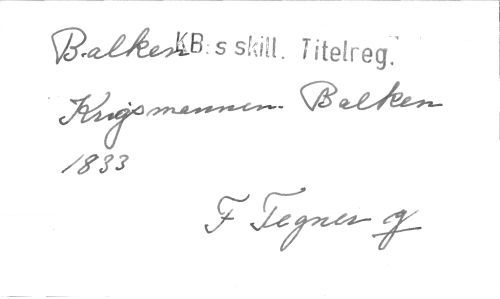 Balken KB:s skill. Titelreg.
Krigsmannen. Balken
1833
F Tegner g